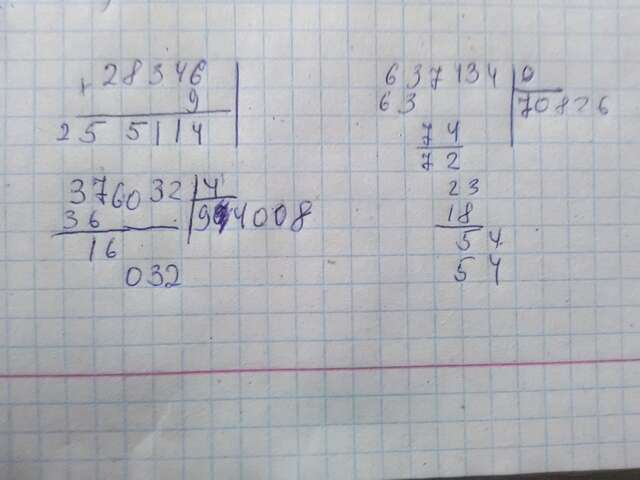 × 28346
9
255114
376032 4
36 94008
16
032
637134 9
63 70826
74
72
23
18
54
54